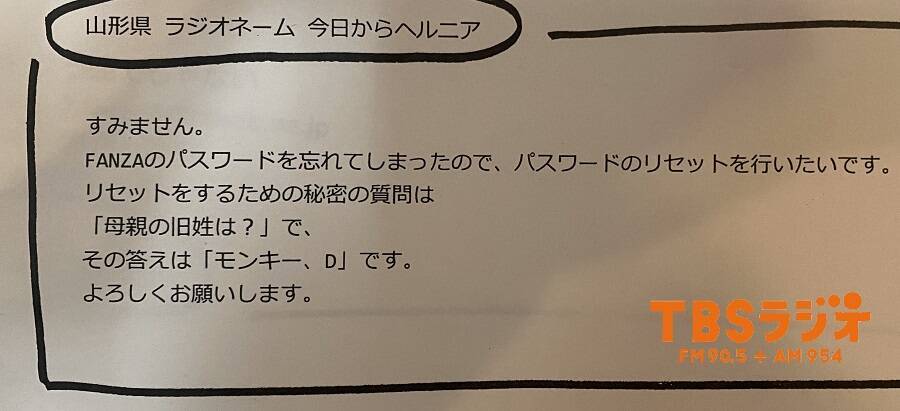 山形県 ラジオネーム 今日からヘルニア
すみません。
FANZAのパスワードを忘れてしまったので、パスワードのリセットを行いたいです。
リセットをするための秘密の質問は
「母親の旧姓は？」で、
その答えは「モンキー、D」です。
よろしくお願いします。
TBSラジオ
FM90.5+AM954